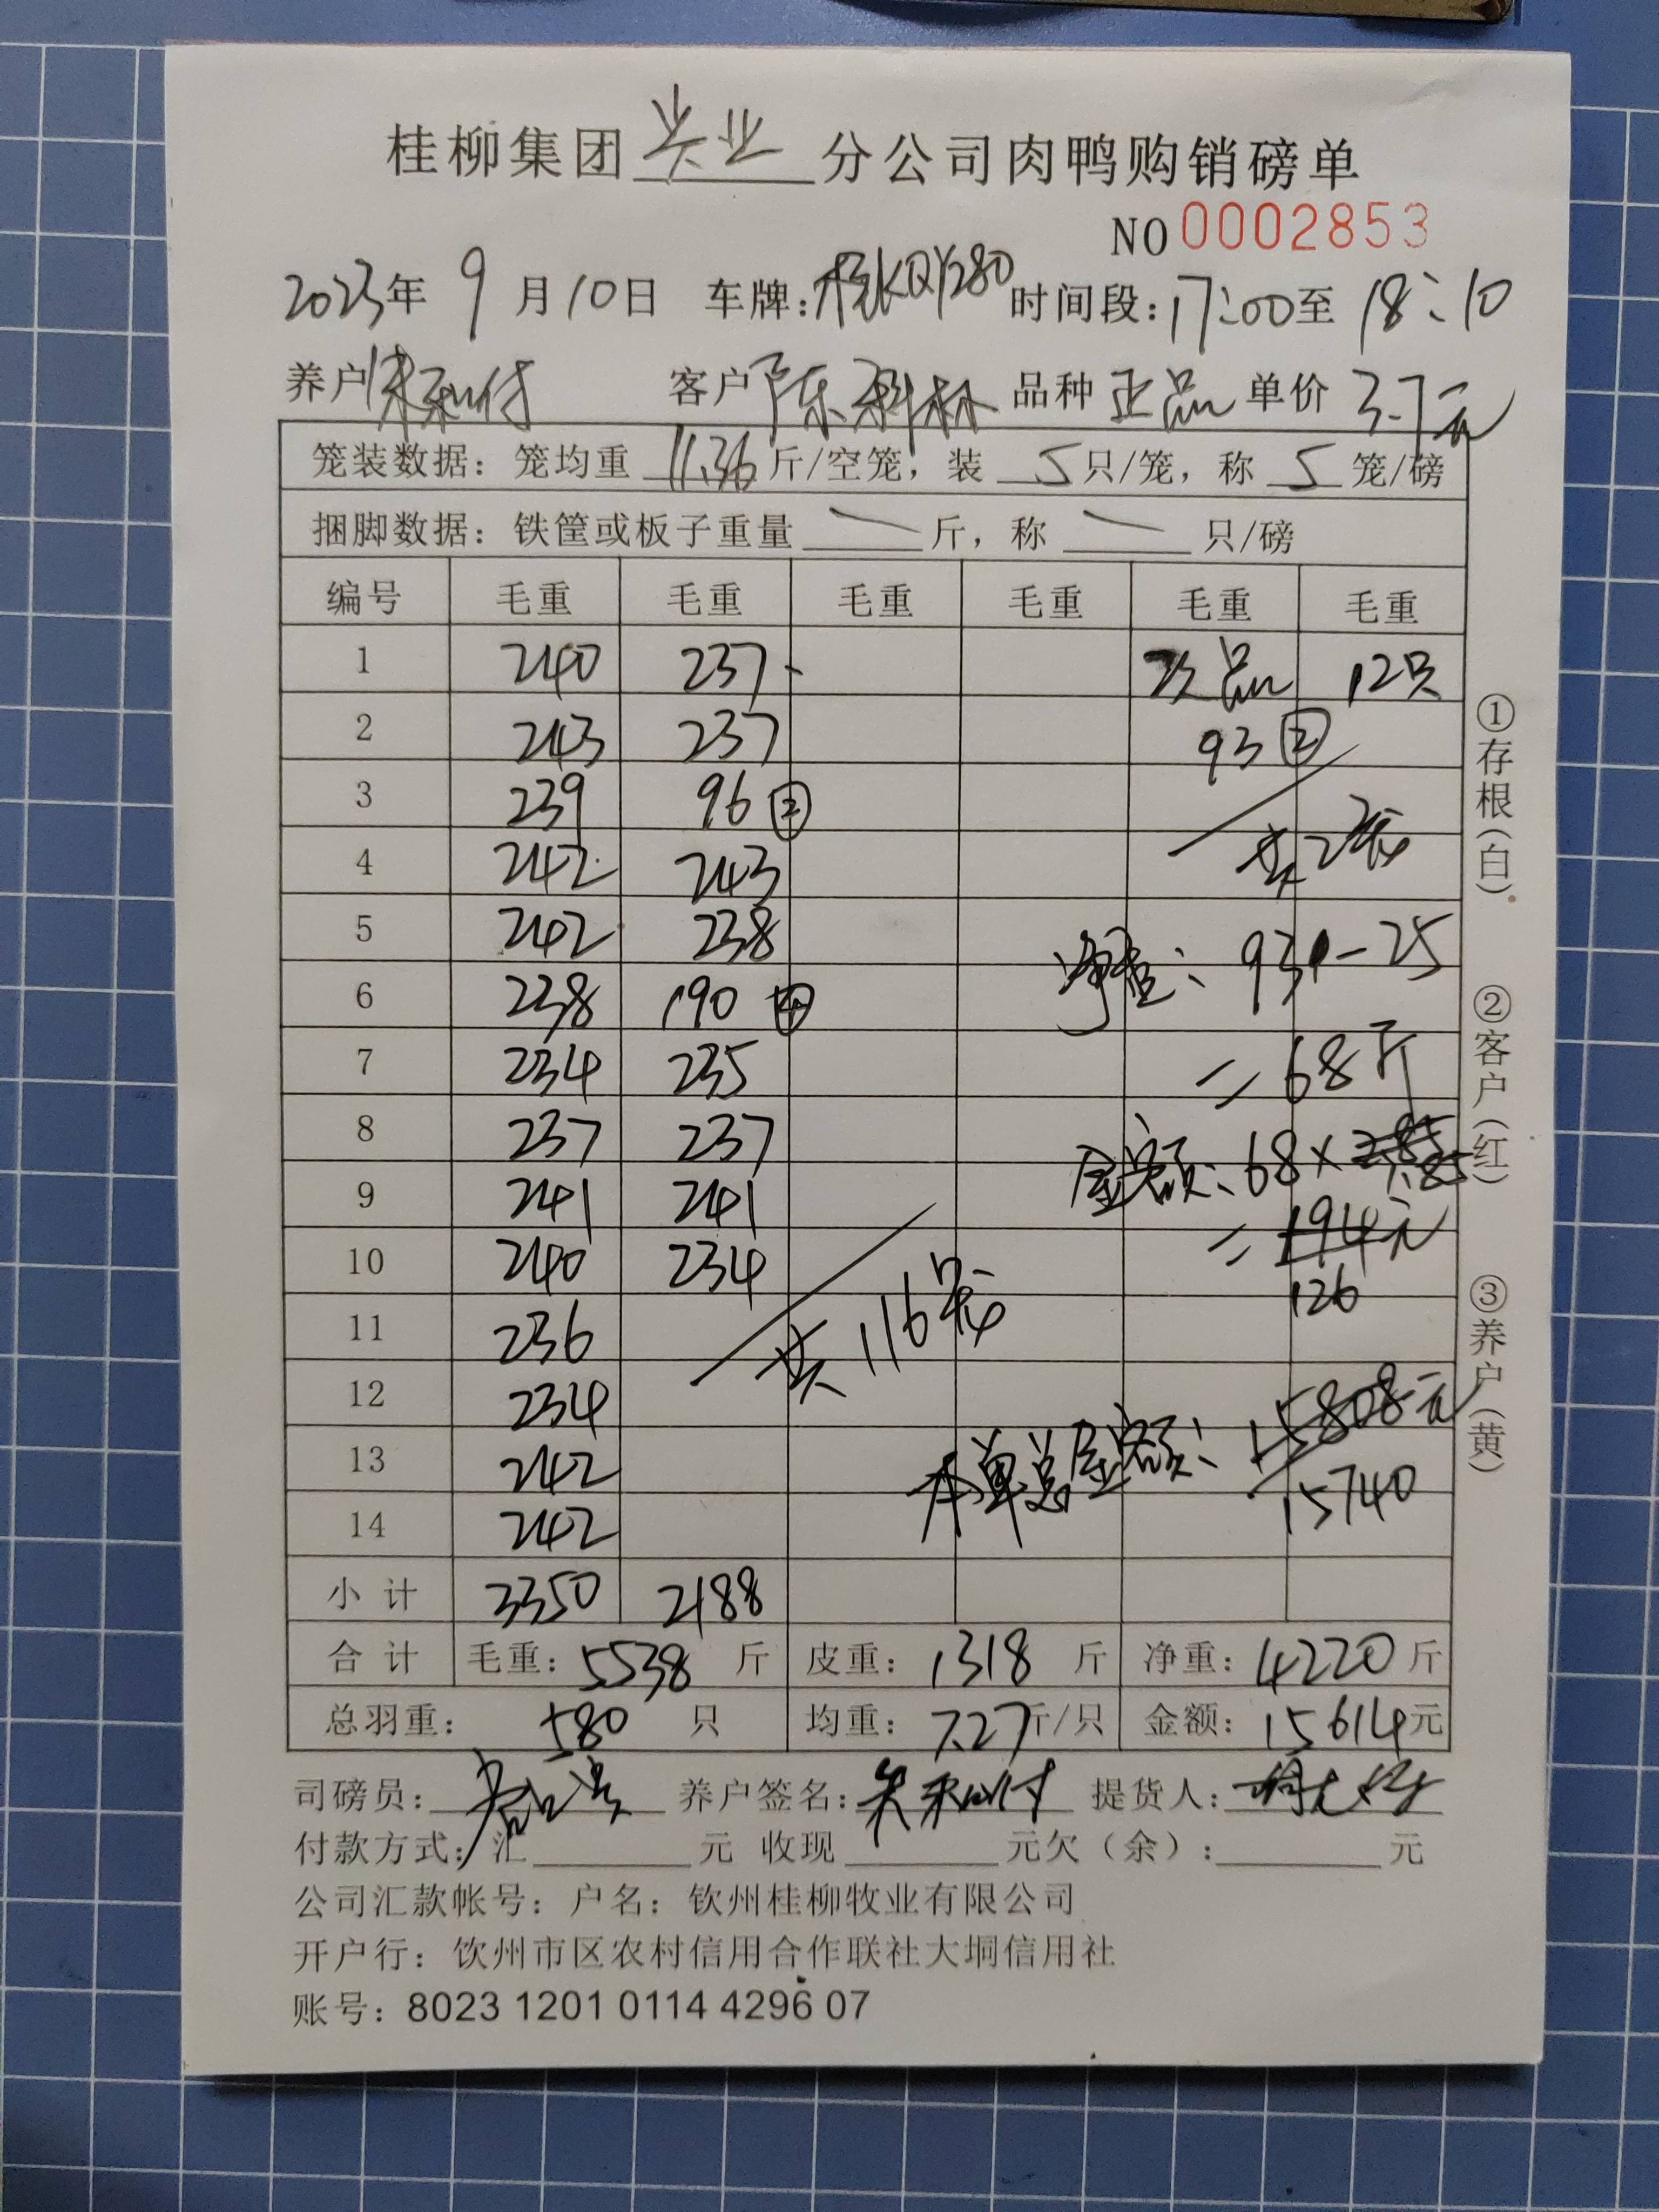 桂柳集团兴业分公司肉鸭购销磅单
NO 0002853
2023年 9 月10日 车牌:桂KQY280 时间段:17:00至 18:10
养户 客户 陈科林 品种 正品 单价 3.7元
笼装数据: 笼均重 11.36 斤/空笼, 装 5 只/笼, 称 5 笼/磅
捆脚数据: 铁筐或板子重量 — 斤, 称 — 只/磅
编号 毛重 毛重 毛重 毛重 毛重 毛重
1 240 237 次品 12只
2 243 237 93 ②
3 239 96 ② 共2笼
4 242 243
5 242 238 净重: 93-25
6 238 190 ④
7 234 235 = 68斤
8 237 237 金额: 68×2.85 1.85
9 241 241 = 194元
10 240 234 126
11 236 共116笼
12 234 15808元
13 242 本单总金额: 15740
14 242
小 计 3350 2188
合 计 毛重: 5538 斤 皮重: 1318 斤 净重: 4220 斤
总羽重: 580 只 均重: 7.27斤/只 金额: 15614元
司磅员: 养户签名: 提货人:
付款方式: 汇 元 收现 元欠(余): 元
公司汇款帐号: 户名: 钦州桂柳牧业有限公司
开户行: 钦州市区农村信用合作联社大垌信用社
账号: 8023 1201 0114 4296 07
①存根(白)
②客户(红)
③养户(黄)